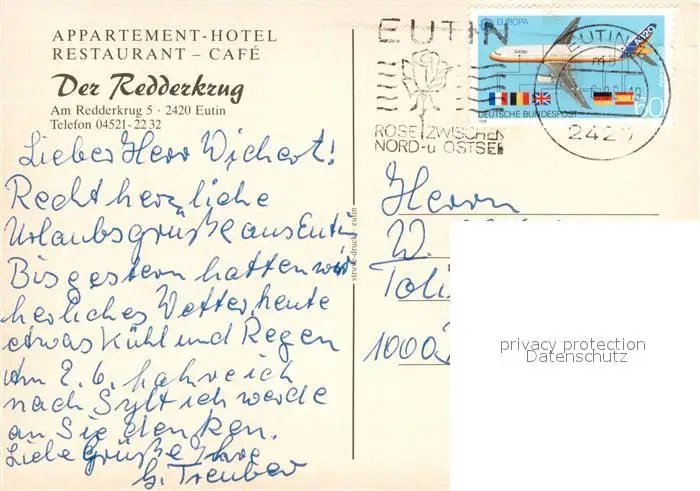 APPARTEMENT-HOTEL
RESTAURANT – CAFÉ
Der Redderkrug
Am Redderkrug 5 · 2420 Eutin
Telefon 04521-2232
Lieber Herr Wichert!
Recht herzliche
Urlaubsgrüße aus Eutin
Bis gestern hatten wir
herliches Wetter, heute
etwas Kühl und Regen
Am 2.6. fahre ich
nach Sylt ich werde
an Sie denken.
Liebe Grüße Ihre
G. Treuber
struve-druck, eutin
EUTIN
ROSE ZWISCHEN
NORD-u OSTSEE
EUROPA
A320
DEUTSCHE BUNDESPOST
60
EUTIN
242
Herrn
W.
Toli
1000
privacy protection
Datenschutz